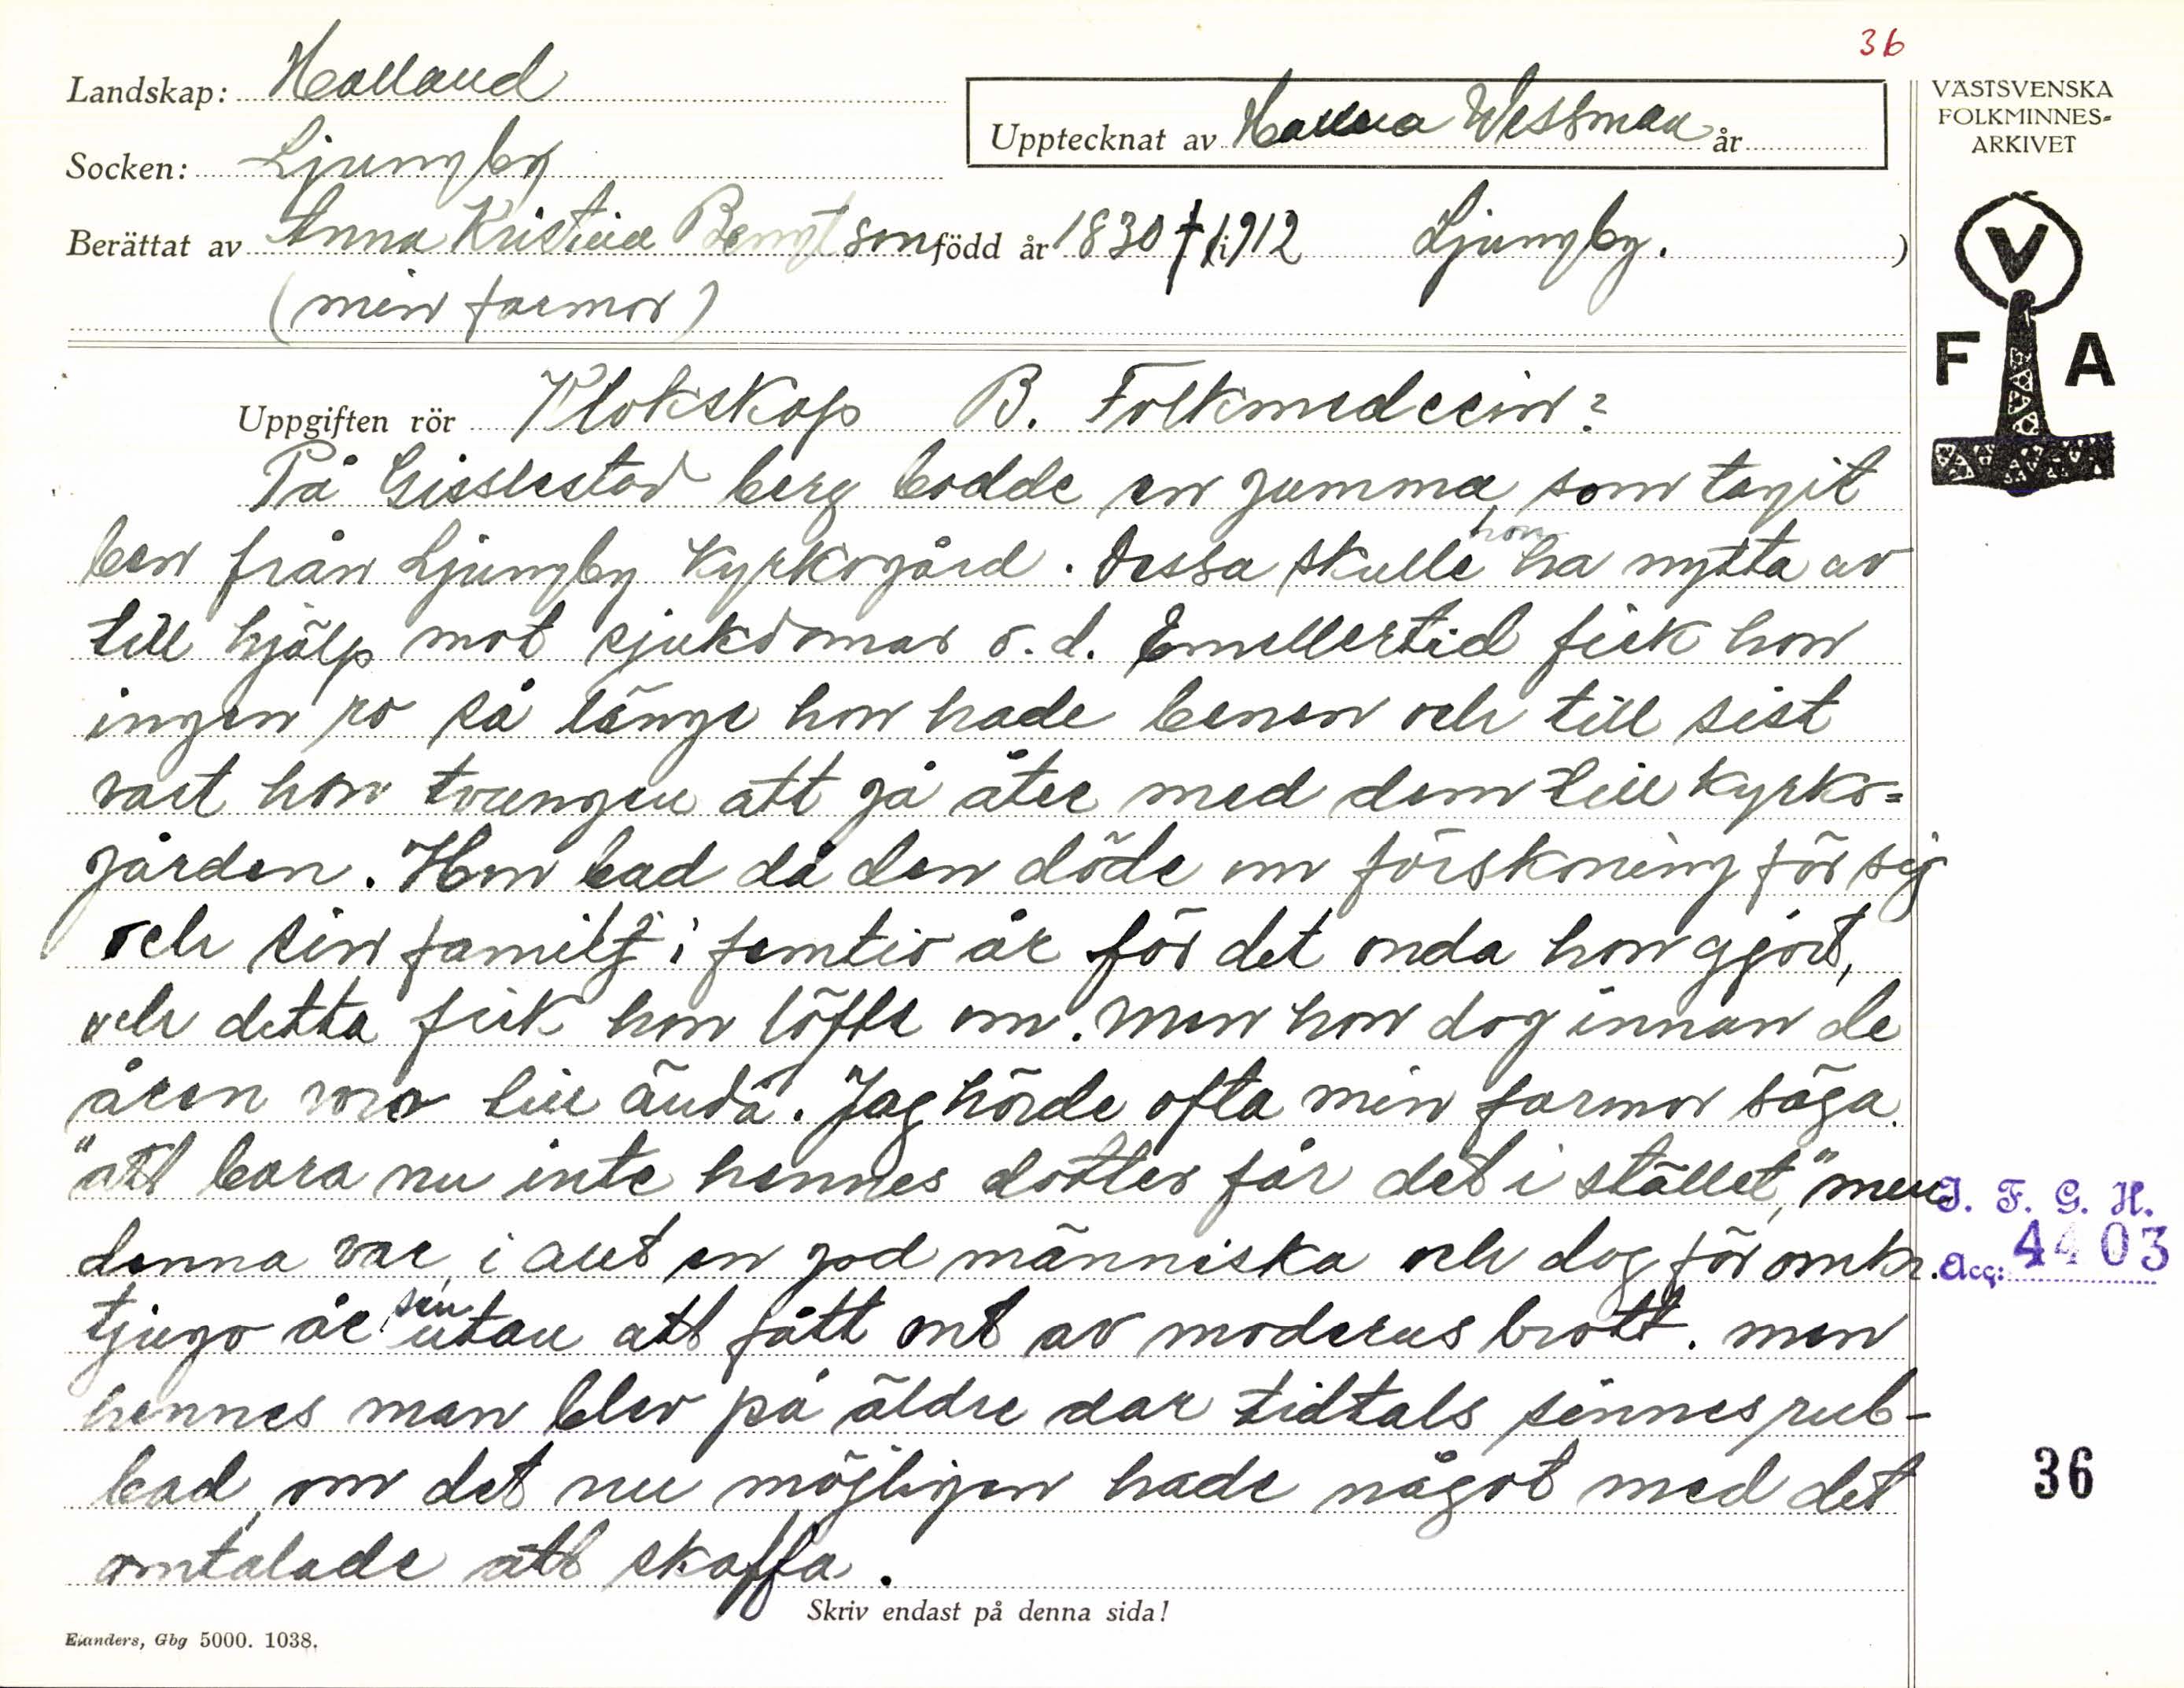 36
Landskap: Halland
Upptecknat av Hanna Wessman år
VÄSTSVENSKA
FOLKMINNES-
ARKIVET
Socken: Ljungby
Berättat av Anna Kristina Bengtson född år 1830 † i 1912 Ljungby. )
(min farmor)
V
F A
Uppgiften rör Klokskap B. Folkmedecin?
På Gisslestad berg bodde en gumma, som tagit
ben från Ljungby Kyrkogård. Dessa skulle hon ha nytta av
till hjälp mot sjukdomar o.d. Emellertid fick hon
ingen ro så länge hon hade benen och till sist
vart hon tvungen att gå åter med dem till kyrko=
gården. Hon bad då den döde om förskoning för sig
och sin familj i femtio år för det onda hon gjort,
och detta fick hon löfte om. Men hon dog innan de
åren voro till ända. Jag hörde ofta min farmor säga
"att bara nu inte hennes dotter får det i stället," men
denna var i allt en god människa och dog för omkr.
tjugo år sen utan att fått ont av moderns brott. Men
hennes man blev på äldre dar tidtals sinnesrub-
bad, om det nu möjligen hade något med det
omtalade att skaffa.
I. F. G. H.
Acc: 4403
36
Skriv endast på denna sida!
Elanders, Gbg 5000. 1038.